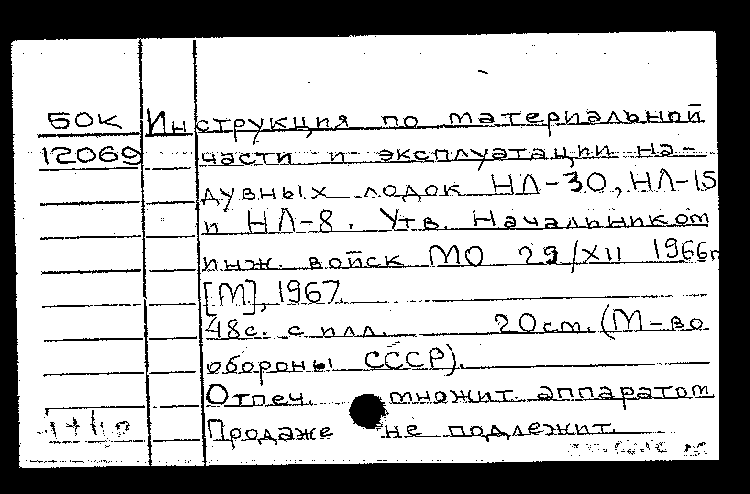 БОК Инструкция по материальной
12069 части и эксплуатации на-
дувных лодок НЛ-30, НЛ-15
и НЛ-8. Утв. Начальником
инж. войск МО 29/XII 1966г
[М], 1967.
48с. с илл. 20см. (М-во
обороны СССР).
Отпеч. множит. аппаратом
Продаже не подлежит.